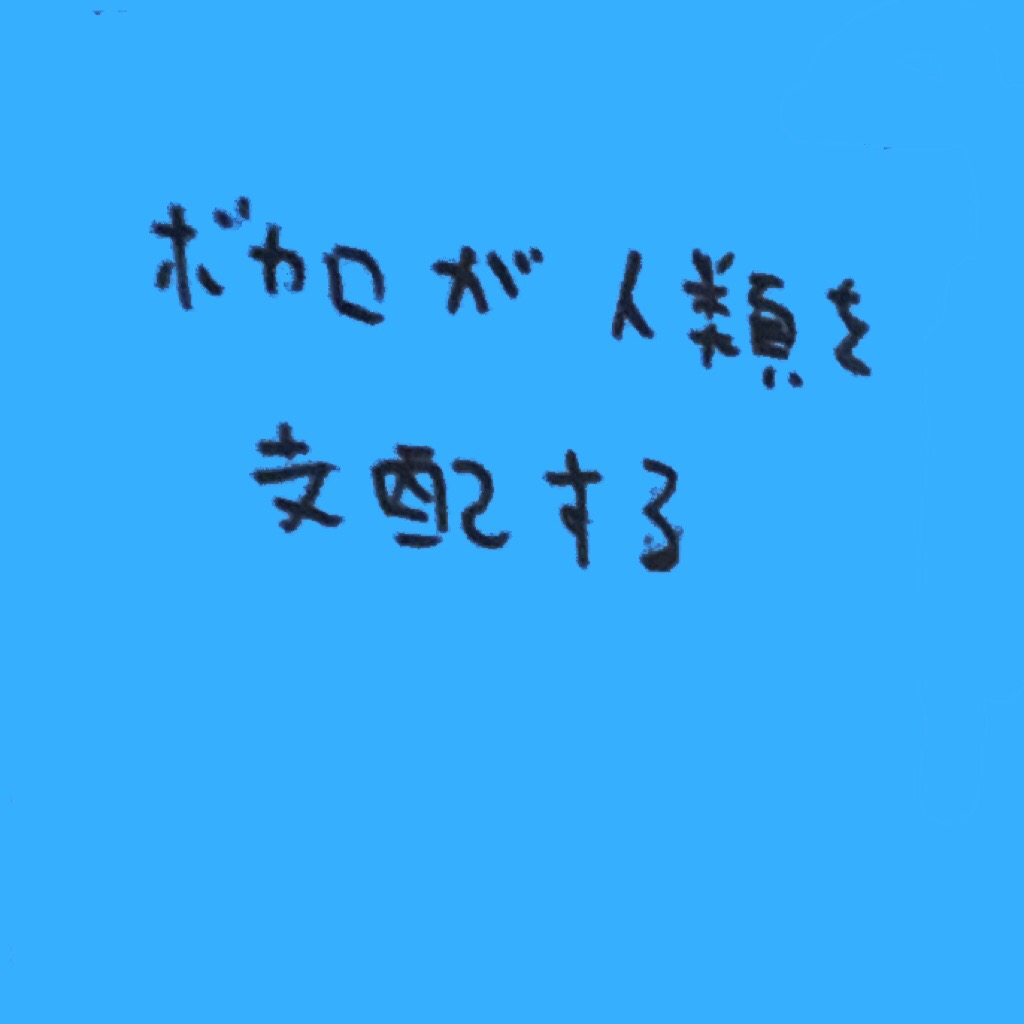 ボカロが人類を
支配する